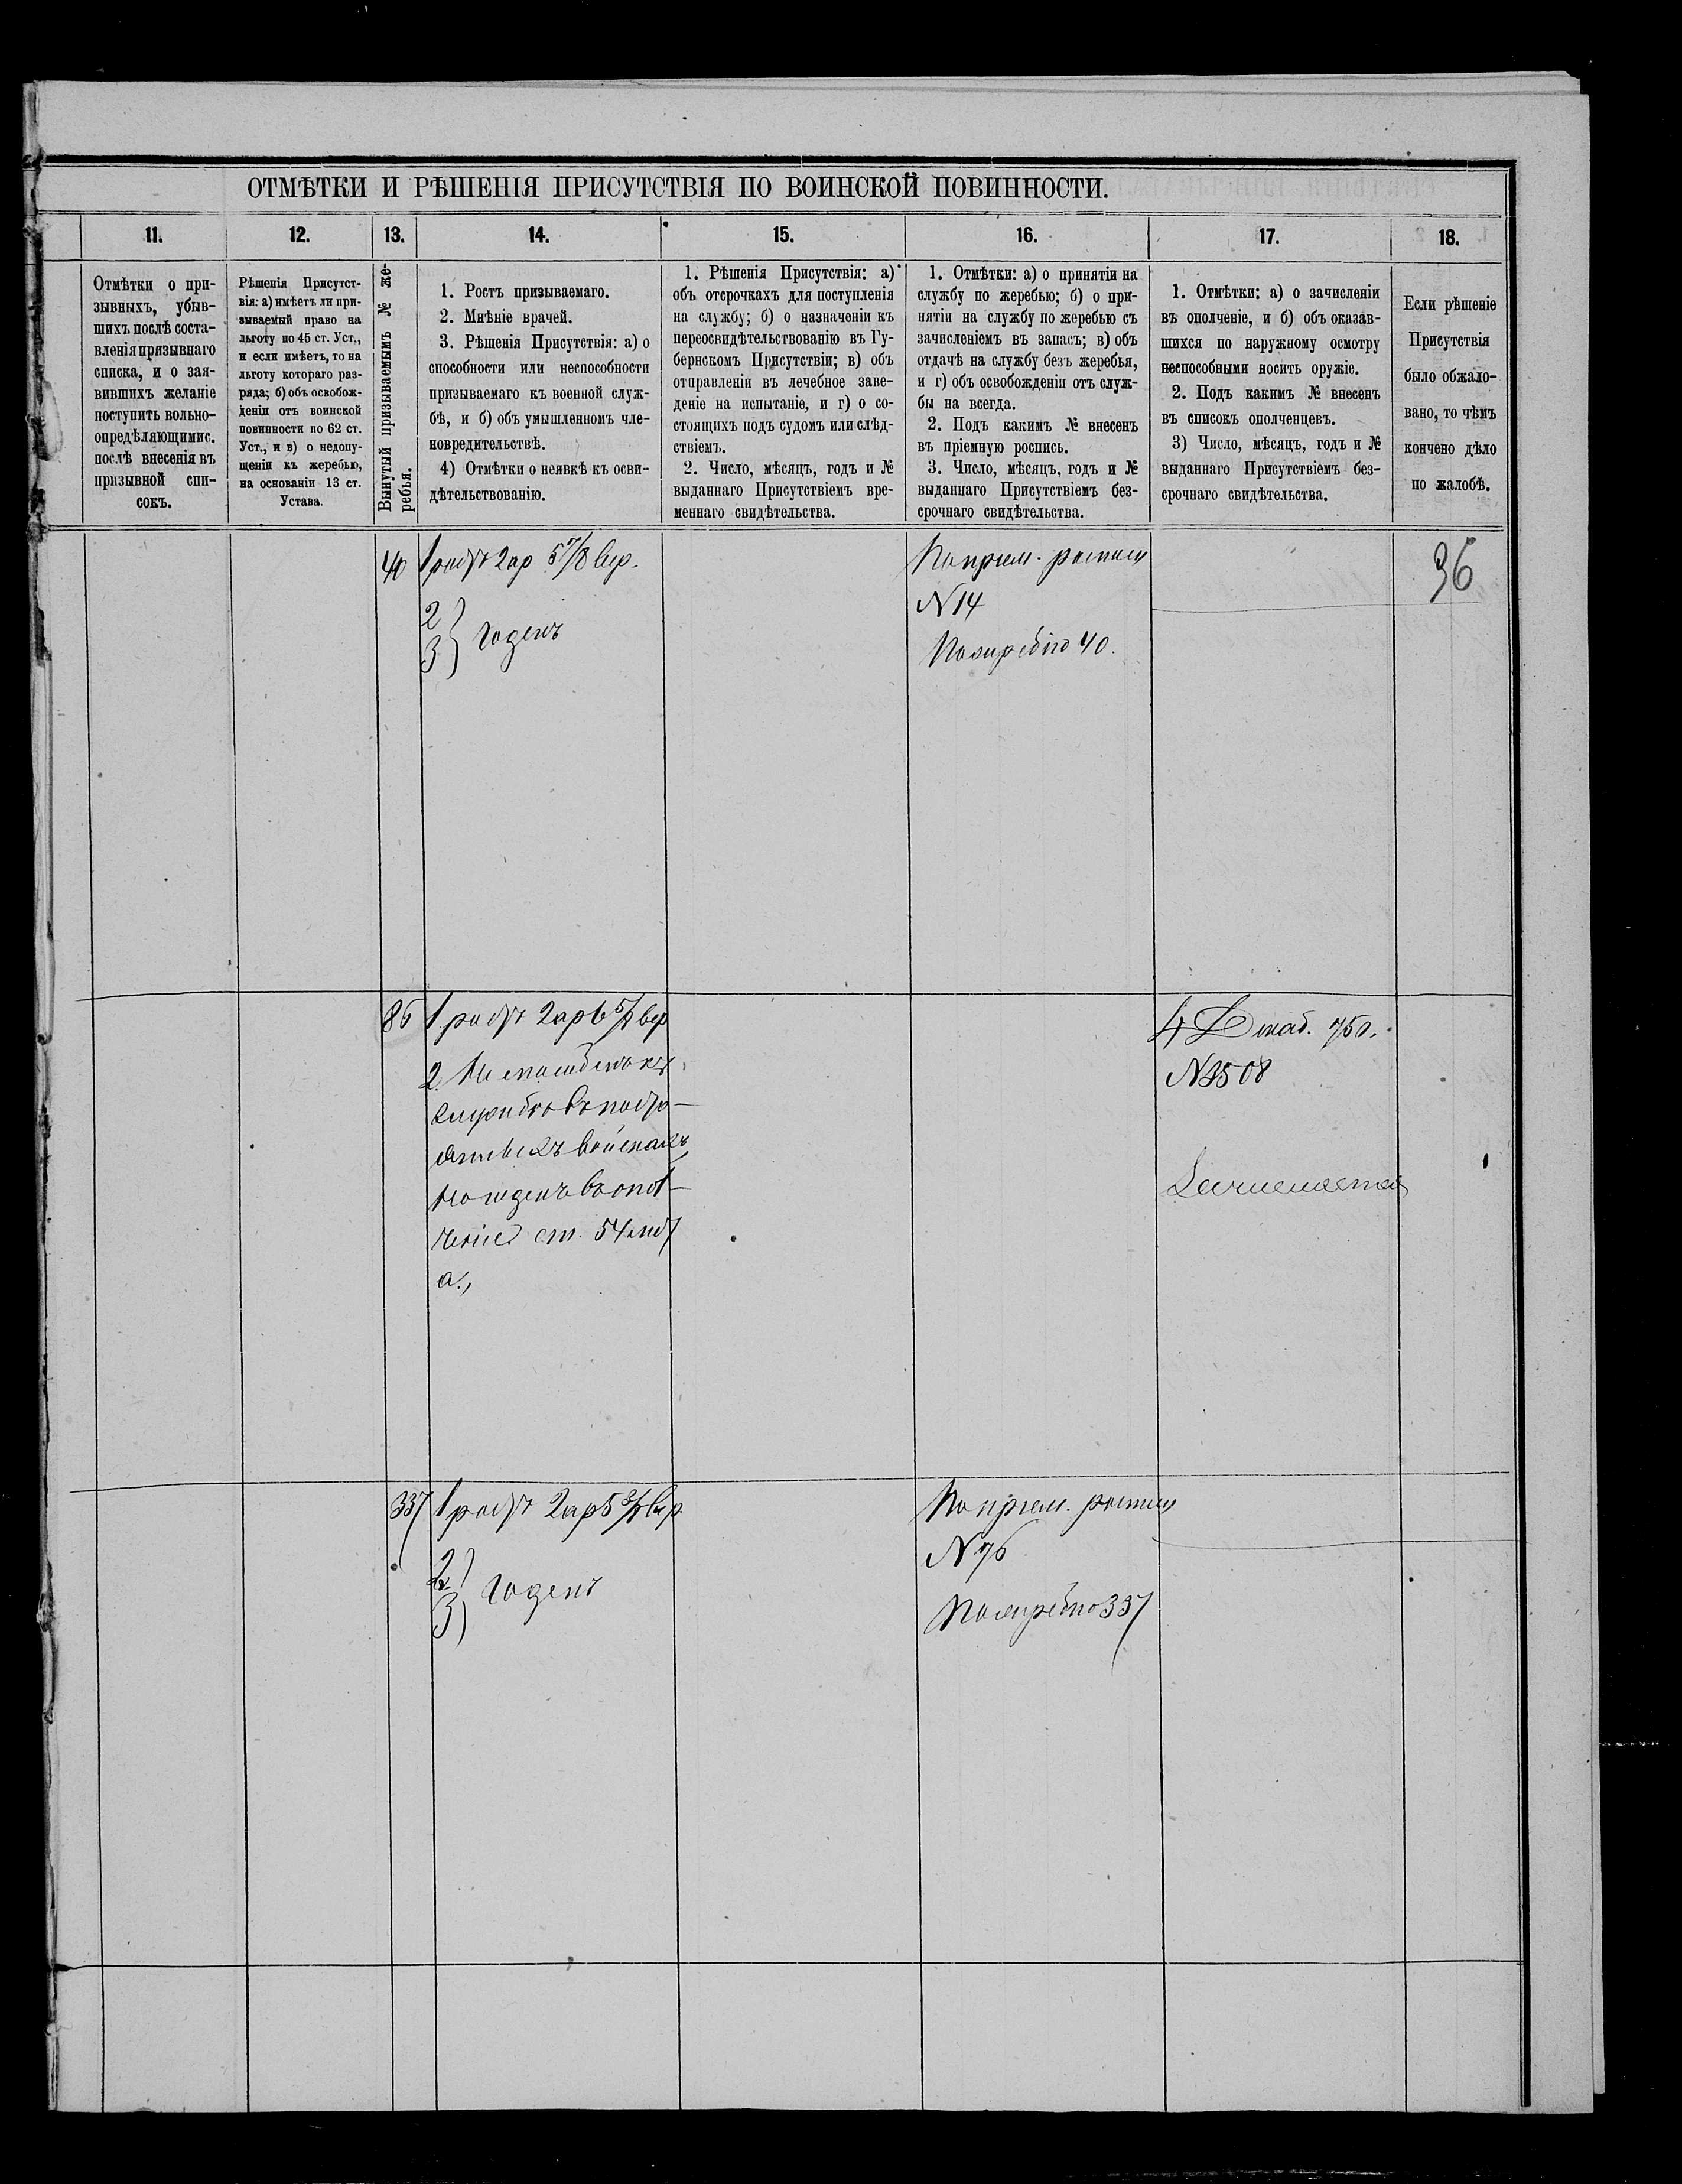 ОТМѢТКИ И РѢШЕНІЯ ПРИСУТСТВІЯ ПО ВОИНСКОЙ ПОВИННОСТИ.
11.
12.
13.
14.
15.
16.
17.
18.
Отмѣтки о при-
зывныхъ, убыв-
шихъ послѣ соста-
вленія призывнаго
списка, и о зая-
вившихъ желаніе
поступить вольно-
опредѣляющимис.
послѣ внесенія въ
призывной спи-
сокъ.
Рѣшенія Присутст-
вія: а) имѣетъ ли при-
зываемый право на
льготу по 45 ст. Уст.,
и если имѣетъ, то на
льготу котораго раз-
ряда; б) объ освобож-
деніи отъ воинской
повинности по 62 ст.
Уст., и в) о недопу-
щеніи къ жеребью,
на основаніи 13 ст.
Устава.
Вынутый призываемымъ № же-
ребья.
1. Ростъ призываемаго.
2. Мнѣніе врачей.
3. Рѣшенія Присутствія: а) о
способности или неспособности
призываемаго къ военной служ-
бѣ, и б) объ умышленномъ чле-
новредительствѣ.
4) Отмѣтки о неявкѣ къ осви-
дѣтельствованію.
1. Рѣшенія Присутствія: а)
объ отсрочкахъ для поступленія
на службу; б) о назначеніи къ
переосвидѣтельствованію въ Гу-
бернскомъ Присутствіи; в) объ
отправленіи въ лечебное заве-
деніе на испытаніе, и г) о со-
стоящихъ подъ судомъ или слѣд-
ствіемъ.
2. Число, мѣсяцъ, годъ и №
выданнаго Присутствіемъ вре-
меннаго свидѣтельства.
1. Отмѣтки: а) о принятіи на
службу по жеребью; б) о при-
нятіи на службу по жеребью съ
зачисленіемъ въ запасъ; в) объ
отдачѣ на службу безъ жеребья,
и г) объ освобожденіи отъ служ-
бы на всегда.
2. Подъ какимъ № внесенъ
въ пріемную роспись.
3. Число, мѣсяцъ, годъ и №
выданнаго Присутствіемъ без-
срочнаго свидѣтельства.
1. Отмѣтки: а) о зачисленіи
въ ополченіе, и б) объ оказав-
шихся по наружному осмотру
неспособными носить оружіе.
2. Подъ какимъ № внесенъ
въ списокъ ополченцевъ.
3) Число, мѣсяцъ, годъ и №
выданнаго Присутствіемъ без-
срочнаго свидѣтельства.
Если рѣшеніе
Присутствія
было обжало-
вано, то чѣмъ
кончено дѣло
по жалобѣ.
40
1 ростъ 2 ар 5 7/8 вер.
2
3 Годенъ
По прием. росписи
N 14
По жеребію 40.
36
86
1 ростъ 2 ар 6 вер
2 Не способенъ къ
службѣ въ посто-
янныхъ войскахъ,
но годенъ въ опол-
ченіе ст. 54
а.,
4 Декаб. 75 г.
337
1 ростъ 2 ар 5 вер
2
3 Годенъ
По прием. росписи
N 76
По жеребію 337